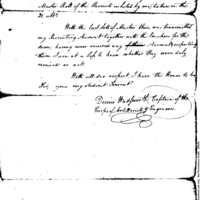 Muster Roll of the Recruits enlisted by me, taken on the
31 Ulto
With the last Roll of Muster there was transmitted
my Recruiting Account together with the Vouchers for the
same; having never received any Account respecting
them I am at a loss to know whether they were duly
received or not.
With all due respect, I have the Honor to be
Sir, your very obedient Servant
Decius Wadsworth Captain of the
Corps of Artillerists & Engineers